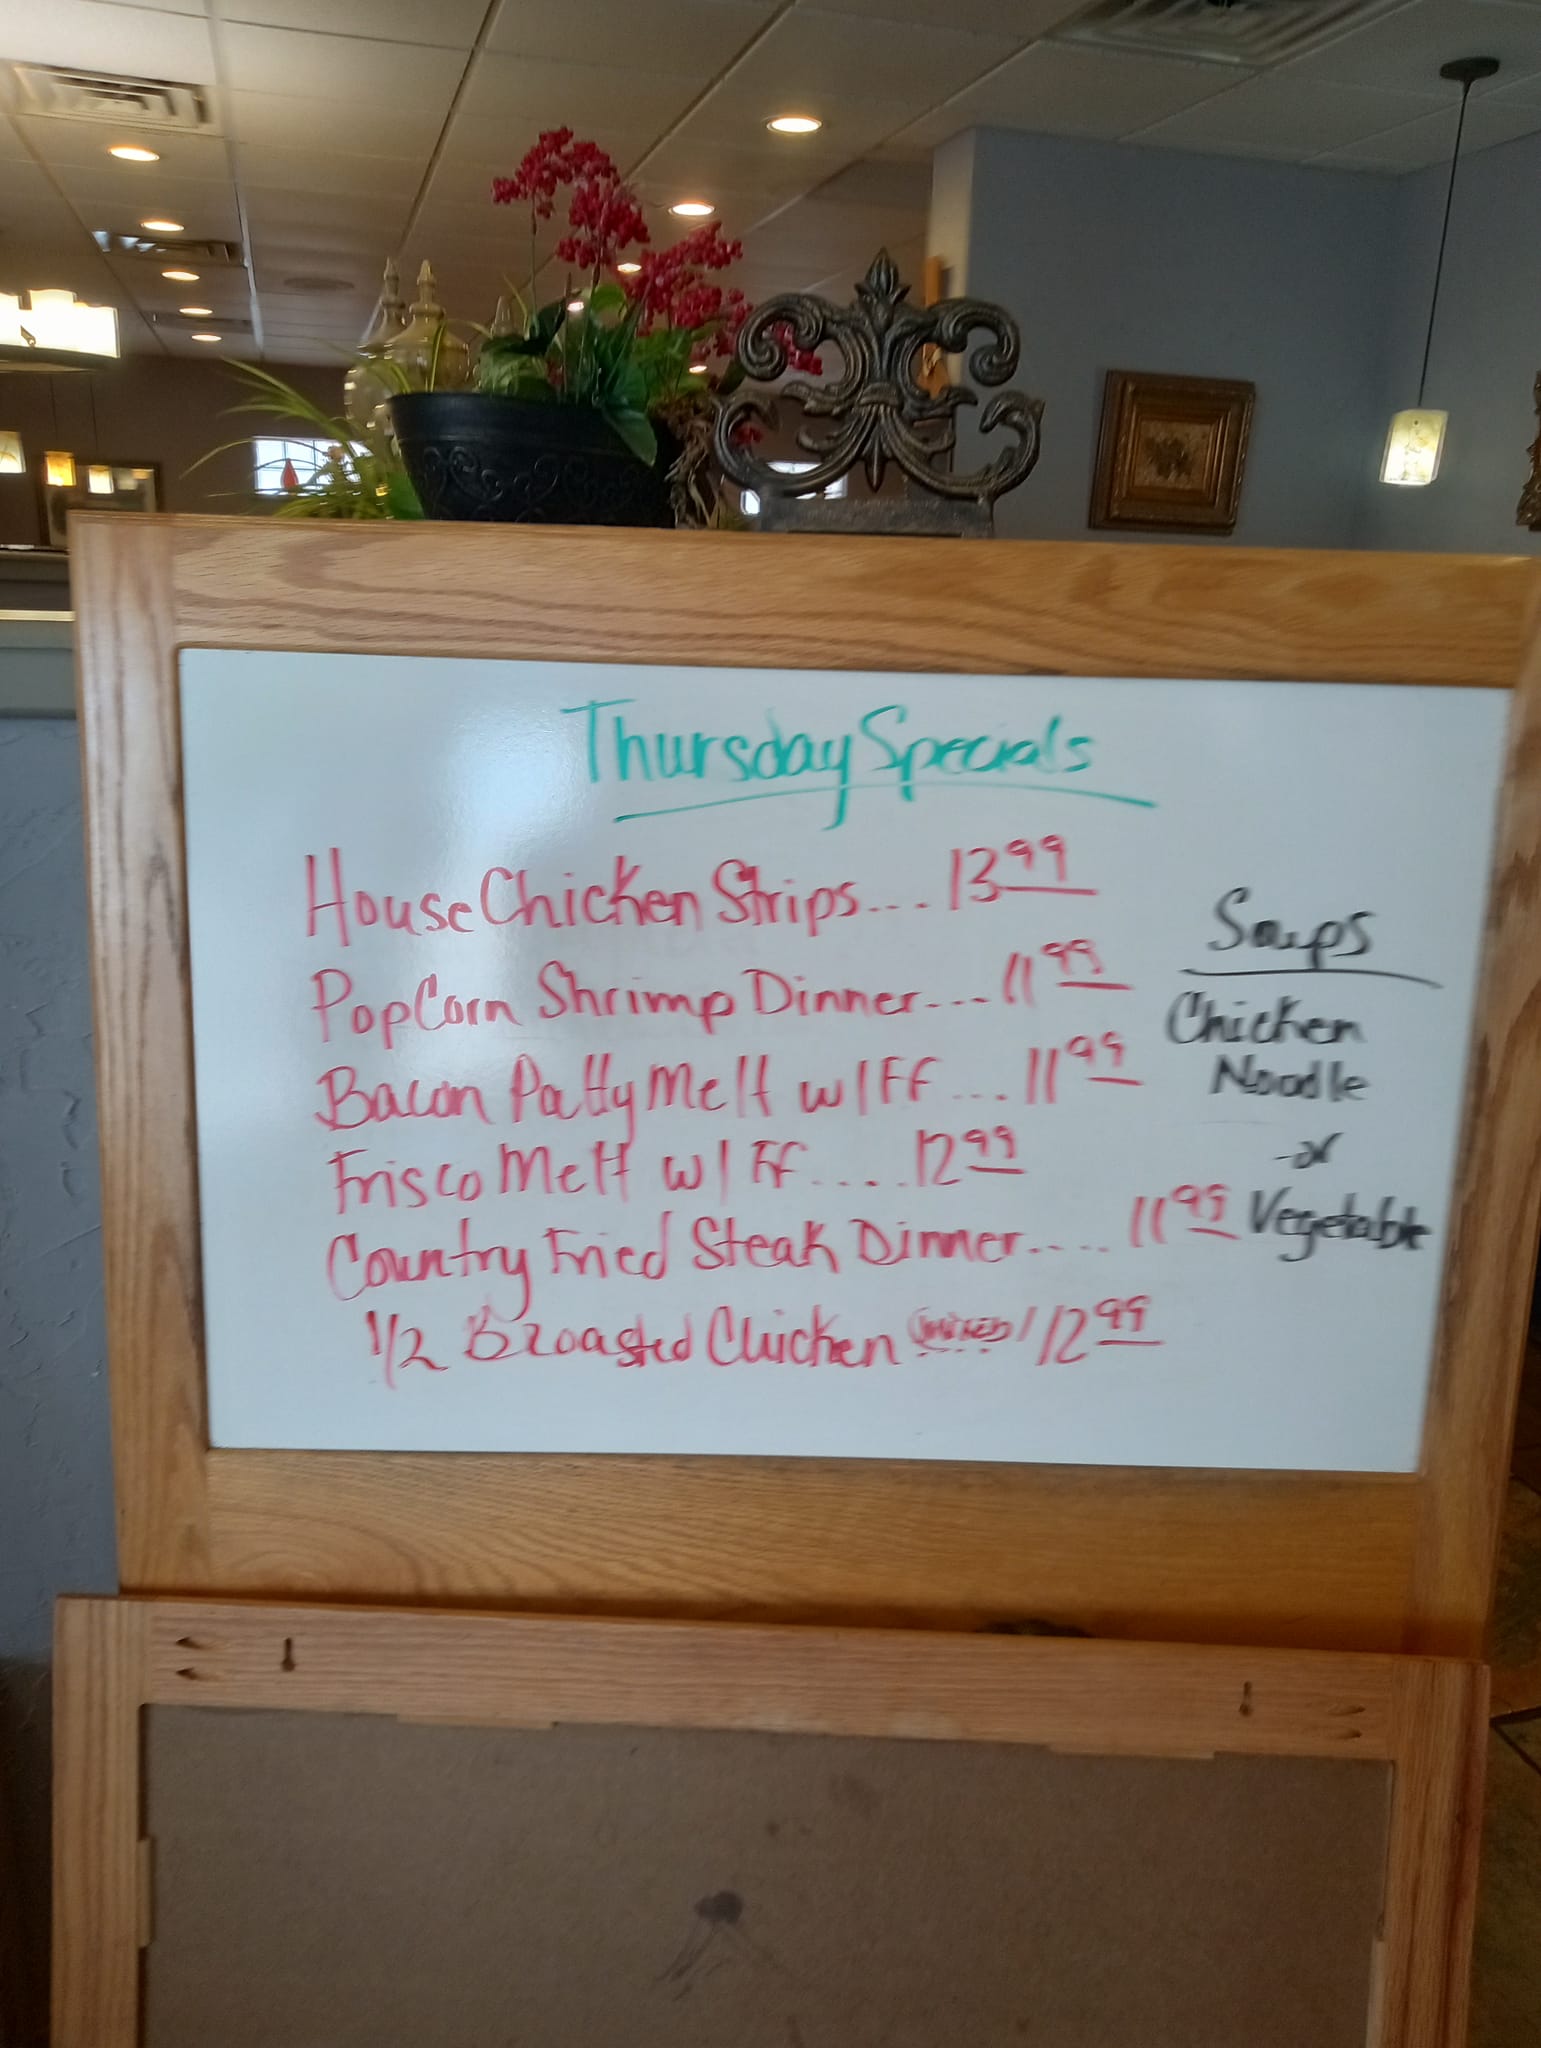 Thursday Specials
House Chicken Strips.... 13 99
PopCorn Shrimp Dinner.... 11 99
Bacon Patty Melt w/ FF .... 11 99
Frisco Melt w/ FF..... 12 99
Country Fried Steak Dinner..... 11 99
1/2 Broasted Chicken / 12 99
Soups
Chicken
Noodle
-or
Vegetable